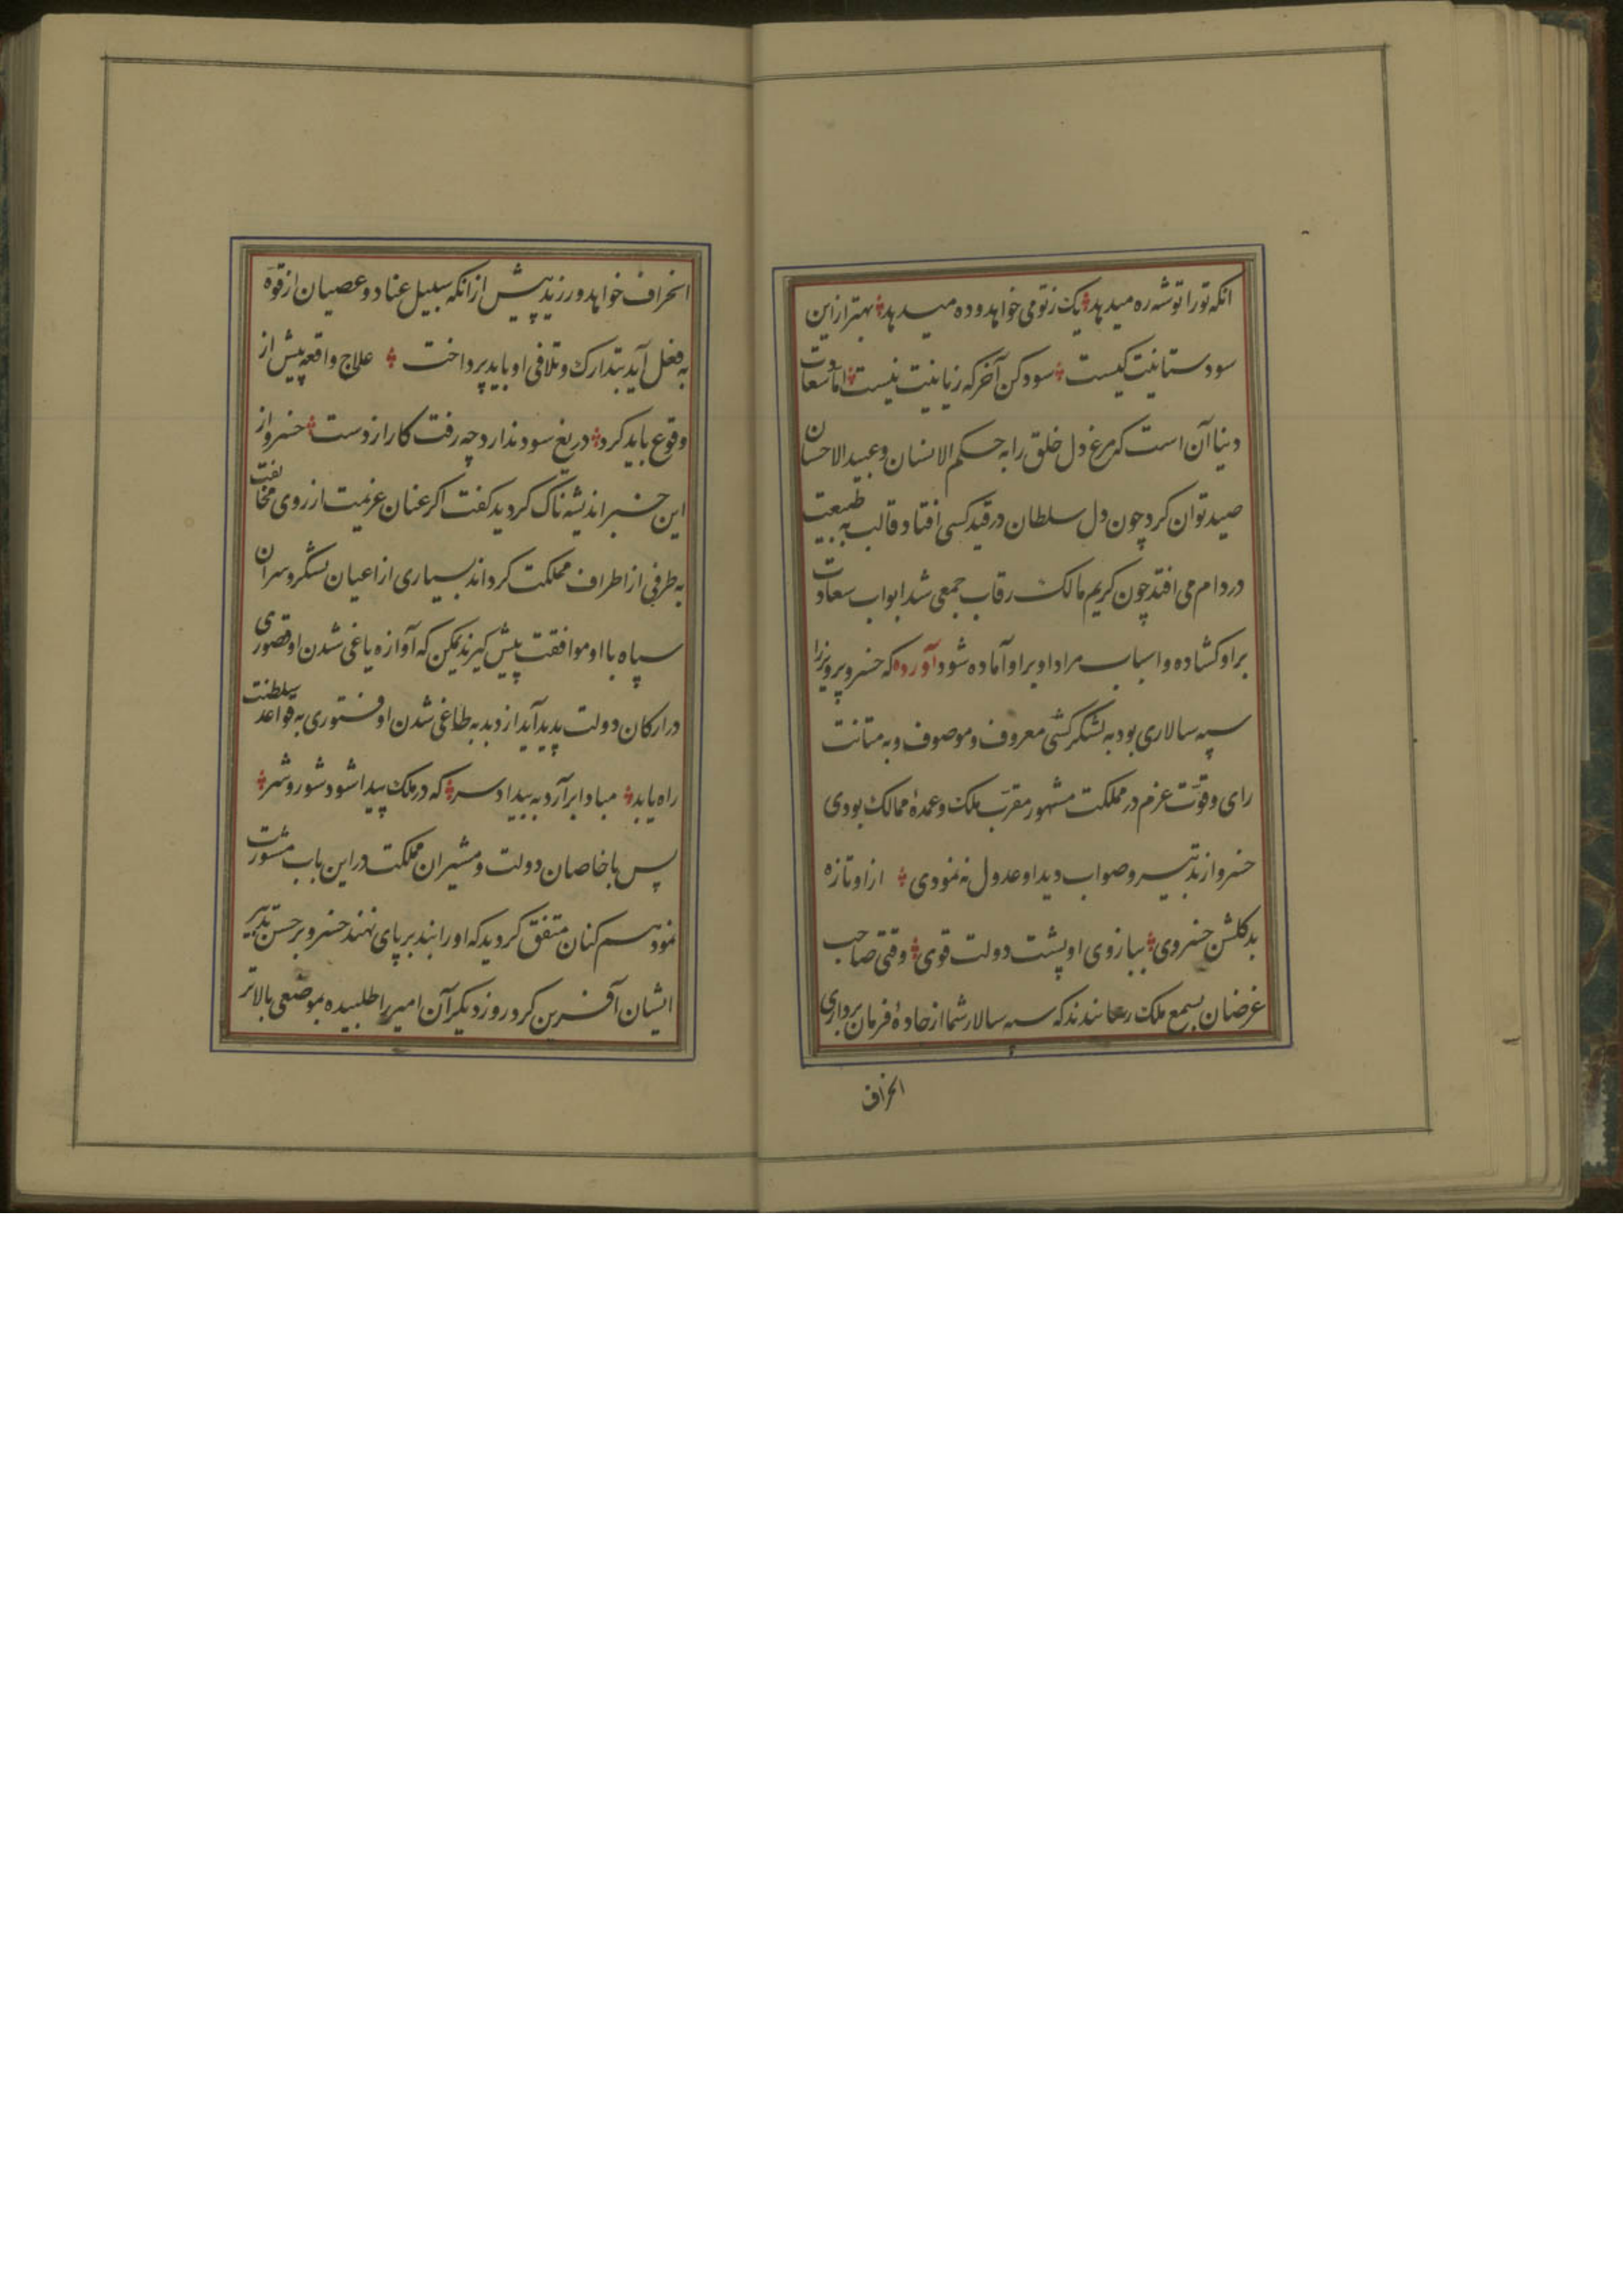 انکه تو را توشه ره میدهد یک ز تو می خواهد و ده میدهد بهتر ازین
سود ستانیت کیست سود کن آخر که زیانیت نیست اما سعادت
دنیا آن است که مرغ دل خلق را به حکم الانسان و عبید الاحسان
صید توان کرد چون دل سلطان در قید کسی افتاد قالب به طبیعت
در دام می افتد چون کریم مالک رقاب جمعی شد ابواب سعادت
بر او کشاده و اسباب مراد او بر او آماده شود آورده که خسرو پرویز را
سپه سالاری بود به لشکر کشی معروف و موصوف و به متانت
رای و قوّت عزم در مملکت مشهور مقرّب ملک و عمدهٔ ممالک بودی
خسرو از تدبیر و صواب دید او عدول نه نمودی از او تازه
بد کلشن خسروی ببازوی او پشت دولت قوی وقتی صاحب
غرضان بسمع ملک رسانیدند که سپه سالار شما از جادهٔ فرمان برداری
انحراف
انحراف خواهد ورزید پیش از انکه سبیل عناد و عصیان از قوّه
به فعل آید بتدارک و تلافی او باید پرداخت علاج واقعه پیش از
وقوع باید کرد دریغ سود ندارد چه رفت کار از دست خسرو از
این خبر اندیشه ناک کردید کفت اکر عنان عزیمت از روی مخالفت
به طرفی از اطراف مملکت کرداند بسیاری از اعیان لشکر و سران
سپاه با او موافقت پیش کیرند یمکن که آوازه یاغی شدن او قصوری
در ارکان دولت پدید آید از دبدبه طاغی شدن او فتوری به قواعد سلطنت
راه یابد مبادا برآرد به بیداد سر که در ملک پیدا شود شور و شر
پس با خاصان دولت و مشیران مملکت در این باب مشورت
نمود همکنان متفق کردید که او را بند بر پای نهند خسرو بر حسن تدبیر
ایشان آفرین کرد روز دیکر آن امیر را طلبیده بموضعی بالاتر